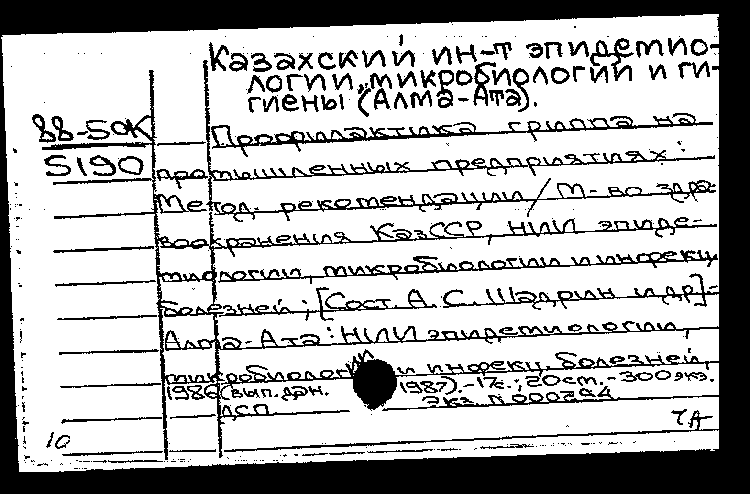 Казахский ин-т эпидемио-
логии, микробиологии и ги-
гиены (Алма-Ата).
88-50К
5190
Профилактика гриппа на
промышленных предприятиях:
Метод. рекомендации / М-во здра-
воохранения КазССР, НИИ эпиде-
миологии, микробиологии и инфекц.
болезней; [Сост. А. С. Шадрин и др.]-
Алма-Ата: НИИ эпидемиологии,
микробиологии и инфекц. болезней,
1986 (вып. дан. 1987).-17с.; 20см.-300экз.
ДСП экз. N 000294
10